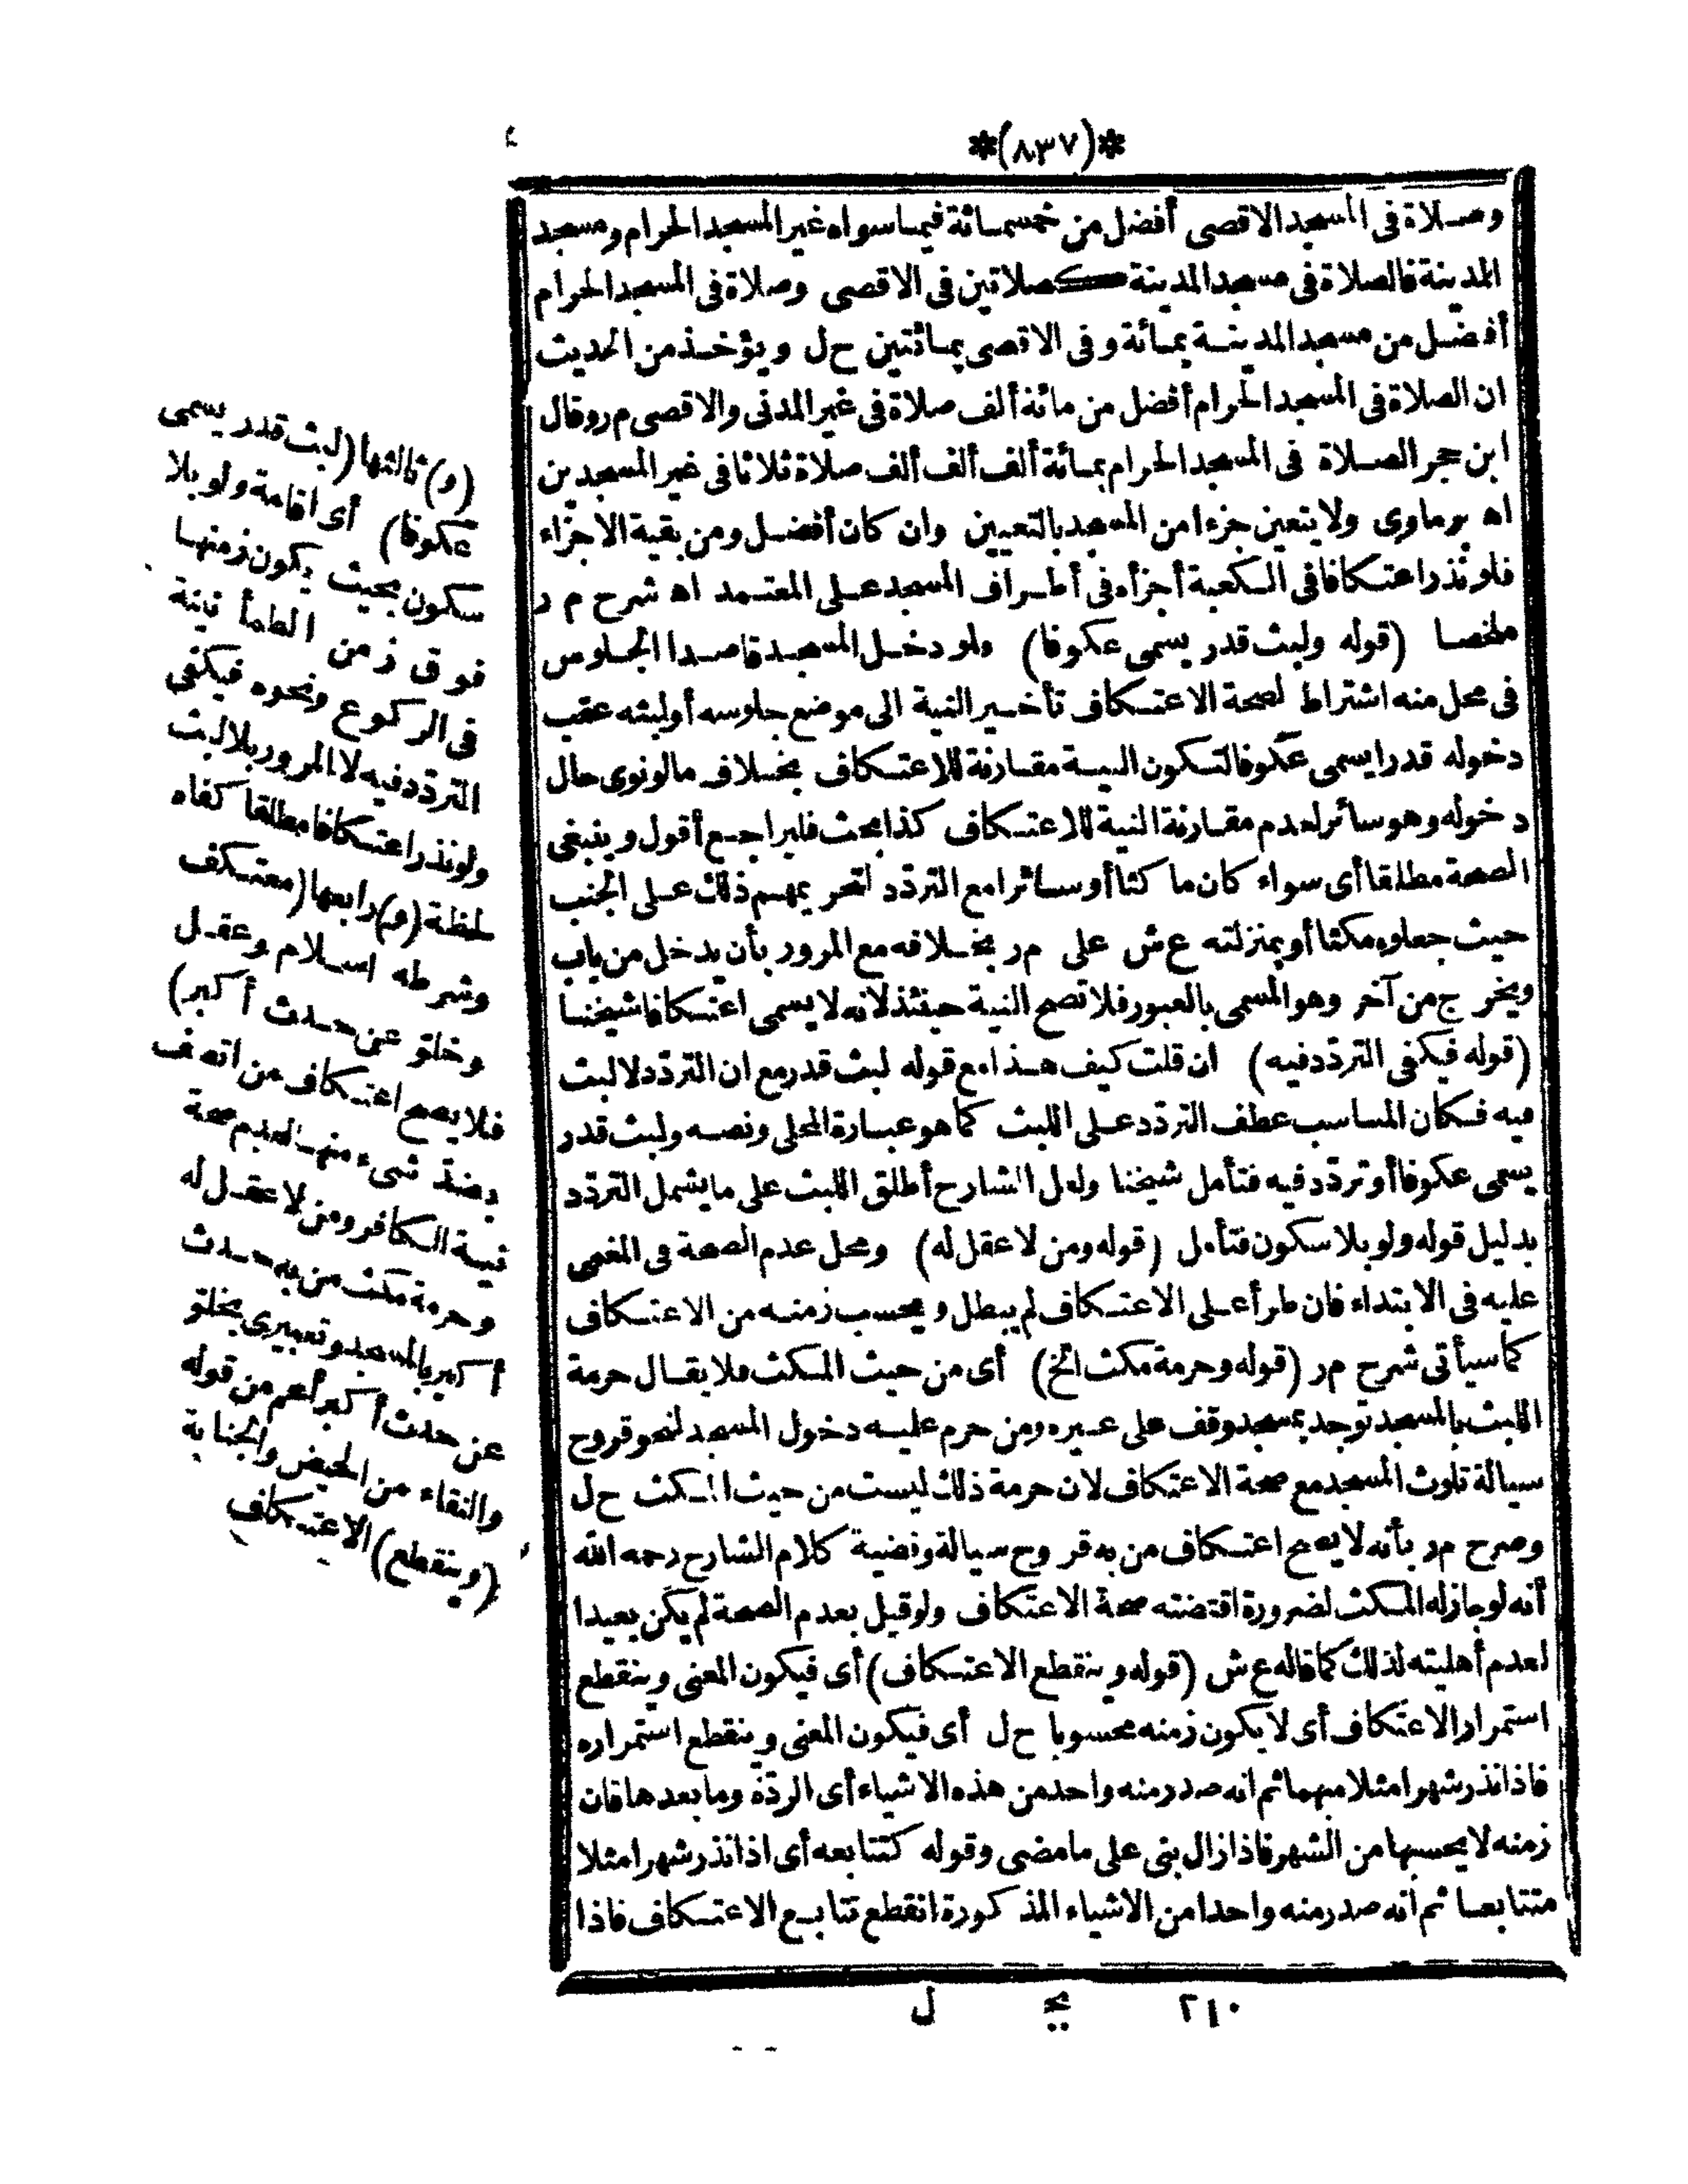 *(٨٣٧)*
وصلاة فى المسجد الاقصى أفضل من خمسمائة فيما سواه غير المسجد الحرام ومسجد
المدينة فالصلاة فى مسجد المدينة كصلاتين فى الاقصى وصلاة فى المسجد الحرام
أفضل من مسجد المدينة بمائة وفى الاقصى بمائتين ح ل ويؤخذ من الحديث
ان الصلاة فى المسجد الحرام أفضل من مائة ألف صلاة فى غير المدنى والاقصى م ر وقال
ابن حجر الصلاة فى المسجد الحرام بمائة ألف ألف ألف صلاة ثلاثا فى غير المسجدين
اه برماوى ولا يتعين جزء امن المسجد بالتعيين وان كان أفضل ومن بقية الاجزاء
فلو نذر اعتكافا فى الكعبة أجزأه فى أطراف المسجد على المعتمد اه شرح م ر
ملخصا (قوله ولبث قدر يسمى عكوفا) ولو دخل المسجد قاصدا الجلوس
فى محل منه اشتراط لصحة الاعتكاف تأخير النية الى موضع جلوسه أولبثه عقب
دخوله قدرا يسمى عكوفا لتكون النية مقارنة للاعتكاف بخلاف مالو نوى حال
دخوله وهو سائر لعدم مقارنة النية للاعتكاف كذا بحث فليراجع أقول وينبغى
الصحة مطلقا أى سواء كان ماكثا أو سائرا مع التردّد لتحريمهم ذلك على الجنب
حيث جعلوه مكثا أو بمنزلته ع ش على م ر بخلافه مع المرور بأن يدخل من باب
ويخرج من آخر وهو المسمى بالعبور فلا تصح النية حينئذ لانه لا يسمى اعتكافا شيخنا
(قوله فيكفى التردّد فيه) ان قلت كيف هذا مع قوله لبث قدر مع ان التردّد لا لبث
فيه فكان المناسب عطف التردّد على اللبث كما هو عبارة المحلى ونصه ولبث قدر
يسمى عكوفا أو تردّد فيه فتأمل شيخنا ولعل الشارح أطلق اللبث على ما يشمل التردّد
بدليل قوله ولو بلا سكون فتأمل (قوله ومن لا عقل له) ومحل عدم الصحة فى المغمى
عليه فى الابتداء فان طرأ على الاعتكاف لم يبطل ويحسب زمنه من الاعتكاف
كما سيأتى شرح م ر (قوله وحرمة مكث الخ) أى من حيث المكث فلا يقال حرمة
اللبث بالمسجد توجد بمسجد وقف على غيره ومن حرم عليه دخول المسجد لنحو قروح
سيالة تلوث المسجد مع صحة الاعتكاف لان حرمة ذلك ليست من حيث المكث ح ل
وصرح م ر بأنه لا يصح اعتكاف من به قروح سيالة وقضية كلام الشارح رحمه الله
أنه لو جاز له المكث لضرورة اقتضته صحة الاعتكاف ولو قيل بعدم الصحة لم يكن بعيدا
لعدم أهليته لذلك كما قاله ع ش (قوله وينقطع الاعتكاف) أى فيكون المعنى وينقطع
استمرار الاعتكاف أى لا يكون زمنه محسوبا ح ل أى فيكون المعنى وينقطع استمراره
فاذا نذر شهرا مثلا مبهما ثم انه صدر منه واحد من هذه الاشياء أى الردّة وما بعدها فان
زمنه لا يحسبها من الشهر فاذا زال بنى على ما مضى وقوله كتتابعه أى اذا نذر شهرا مثلا
متتابعا ثم أنه صدر منه واحدا من الاشياء المذكورة انقطع تتابع الاعتكاف فاذا
٢١٠ يج ل
(و) ثالثها (لبث قدر يسمى
عكوفا) أى اقامة ولو بلا
سكون بحيث يكون زمنها
فوق زمن الطمأنينة
فى الركوع ونحوه فيكفى
التردّد فيه لا المرور بلا لبث
ولو نذر اعتكافا مطلقا كفاه
لحظة (و) رابعها (معتكف
وشرطه اسلام وعقل
وخلو عن حدث أكبر)
فلا يصح اعتكاف من اتصف
بضدّ شىء منها لعدم صحة
نية الكافر ومن لا عقل له
وحرمة مكث من به حدث
أكبر بالمسجد وتعبيرى بخلو
عن حدث أكبر أعم من قوله
والنقاء من الحيض والجنابة
(وينقطع) الاعتكاف